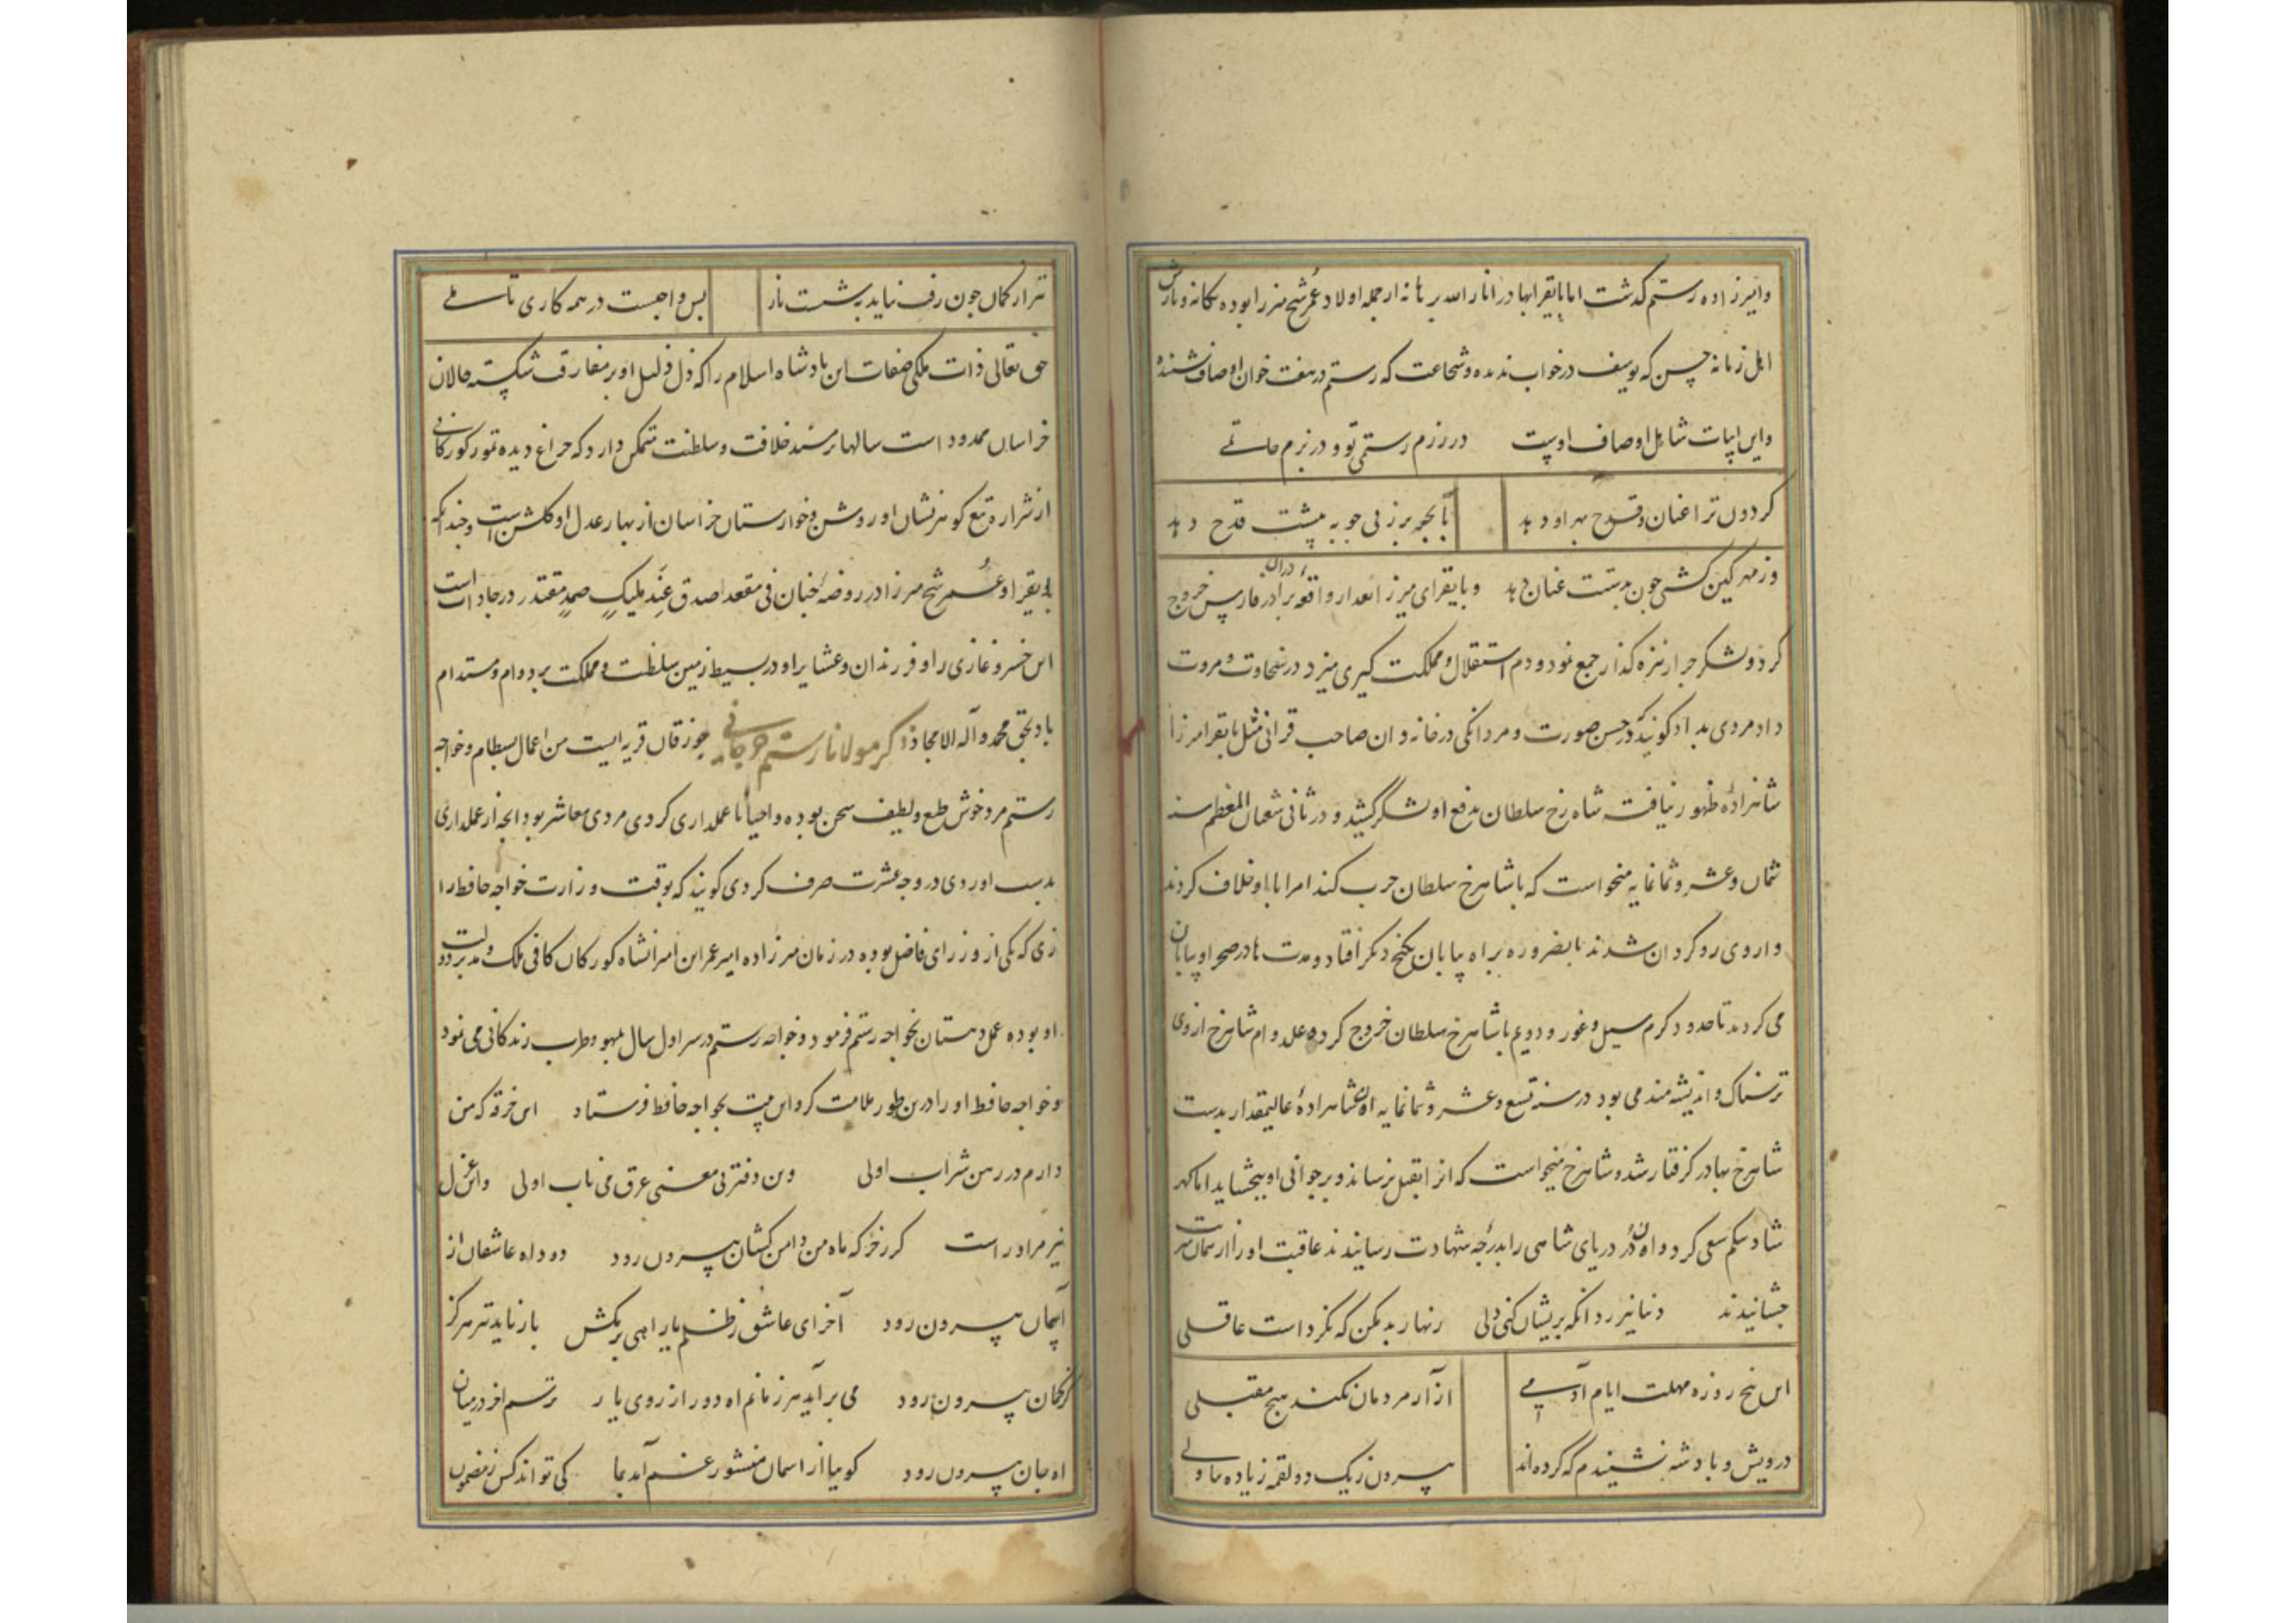 وامیرزاده رستم گذشت اما بایقرا بهادر انار الله برهانه از جمله اولاد عمر شیخ میرزا بوده یگانه و نازش
اهل زمانه حسن که یوسف در خواب ندیده و شجاعت که رستم در هفت خوان اوصاف نشنیده
واین ابیات شامل اوصاف اوست در رزم رستمی تو و در بزم حاتمی
کردون ترا عنان و قدح بهر او دهد تا بحر برزنی چو به پیشت قدح دهد
وز مهر کین کشی چون بدستت عنان دهد وبایقرای میرزا بعد از واقعه برادر در فارس خروج
کرد ولشکر جرار نیزه کذار جمع نمود و دم استقلال و مملکت کیری میزد در سخاوت و مروت
داد مردی بداد کویند که در حسن صورت و مردانکی در خانه وان صاحب قرانی مثل بایقرا میرزا
شاهزاده ظهور نیافت شاه رخ سلطان بدفع او لشکر کشید و در ثانی شعبان المعظم سنه
ثمان وعشر وثمانمایه میخواست که با شاهرخ سلطان حرب کند امرا با او خلاف کردند
و از وی رو کردان شدند بالضروره براه بیابان کیج و مکر افتاد و مدت ها در صحرا و بیابان
می کردید تا حدود کرم سیل و غور و دویم با شاهرخ سلطان خروج کرده علی دوام شاهرخ از وی
ترسناک و اندیشه مند می بود در سنه تسع وعشر وثمانمایه آن شاهزاده عالیمقدار بدست
شاهرخ بهادر کرفتار شد و شاهرخ میخواست که او را بقتل نرساند و بر جوانی او ببخشاید اما کهر
شاد بیکم سعی کرد و ان در دریای شاهی را بدرجه شهادت رسانیدند عاقبت او را از همان شربت
چشانیدند دنیا نیرزد انکه پریشان کنی دلی زنهار بد مکن که نکرد است عاقلی
این پنج روزه مهلت ایام آدمی آزار مردمان نکند هیچ مقبلی
درویش و پادشه نشنیدم که کرده اند بیرون ز یک دو لقمه زیاده تناولی
تیر از کمان چون رفت نیاید بشست باز پس واجبست در همه کاری تاملی
حق تعالی ذات ملکی صفات این پادشاه اسلام را که ظل ظلیل او بر مفارق شکسته حالان
خراسان ممدود است سالها بر مسند خلافت و سلطنت متمکن دارد که چراغ دیده تمور کورکانی
از شرار تیغ کوهر نشان او روشن و خوارستان خراسان از بهار عدل او کلشن است و چندانکه
بایقرا و عمر شیخ میرزا در روضه جنان فی مقعد صدق عند ملیک صمد مقتدر درجات است
این خسرو غازی را و فرزندان و عشایر او در بسیط زمین سلطنت و مملکت بر دوام و مستدام
باد بحق محمد و آله الامجاد ذکر مولانا رستم خوریانی جوزقان قریه ایست من اعمال بسطام و خواجه
رستم مرد خوش طبع و لطیف سخن بوده و احیانا عملداری کردی مردی معاشر بود انچه از عملداری
بدست اوردی در وجه عشرت صرف کردی کویند که بوقت وزارت خواجه حافظ را
زی که یکی از وزرای فاضل بوده در زمان میرزاده امیر عمر ابن امرانشاه کورکان کافی ملک و مدبر دولت
او بوده عمل دهستان بخواجه رستم فرمود و خواجه رستم در سر اول سال بلهو و طرب زندکانی می نمود
وخواجه حافظ او را درین طور ملامت کرد و این بیت بخواجه حافظ فرستاد این خرقه که من
دارم در رهن شراب اولی وین دفتر بی معنی غرق می ناب اولی واین غزل
نیز مر اوراست کر ز خرکه ماه من دامن کشان بیرون رود دود اه عاشقان از
آسمان بیرون رود آخر ای عاشق ز ظلم یار اهی برمکش باز ناید تیر هرکز
کز کمان بیرون رود می برآید هر زمانم اه دور از روی یار ترسم اخر در میان
اه جان بیرون رود کوییا از اسمان منشور غم آمد بما کی تواند کس ز مضمون